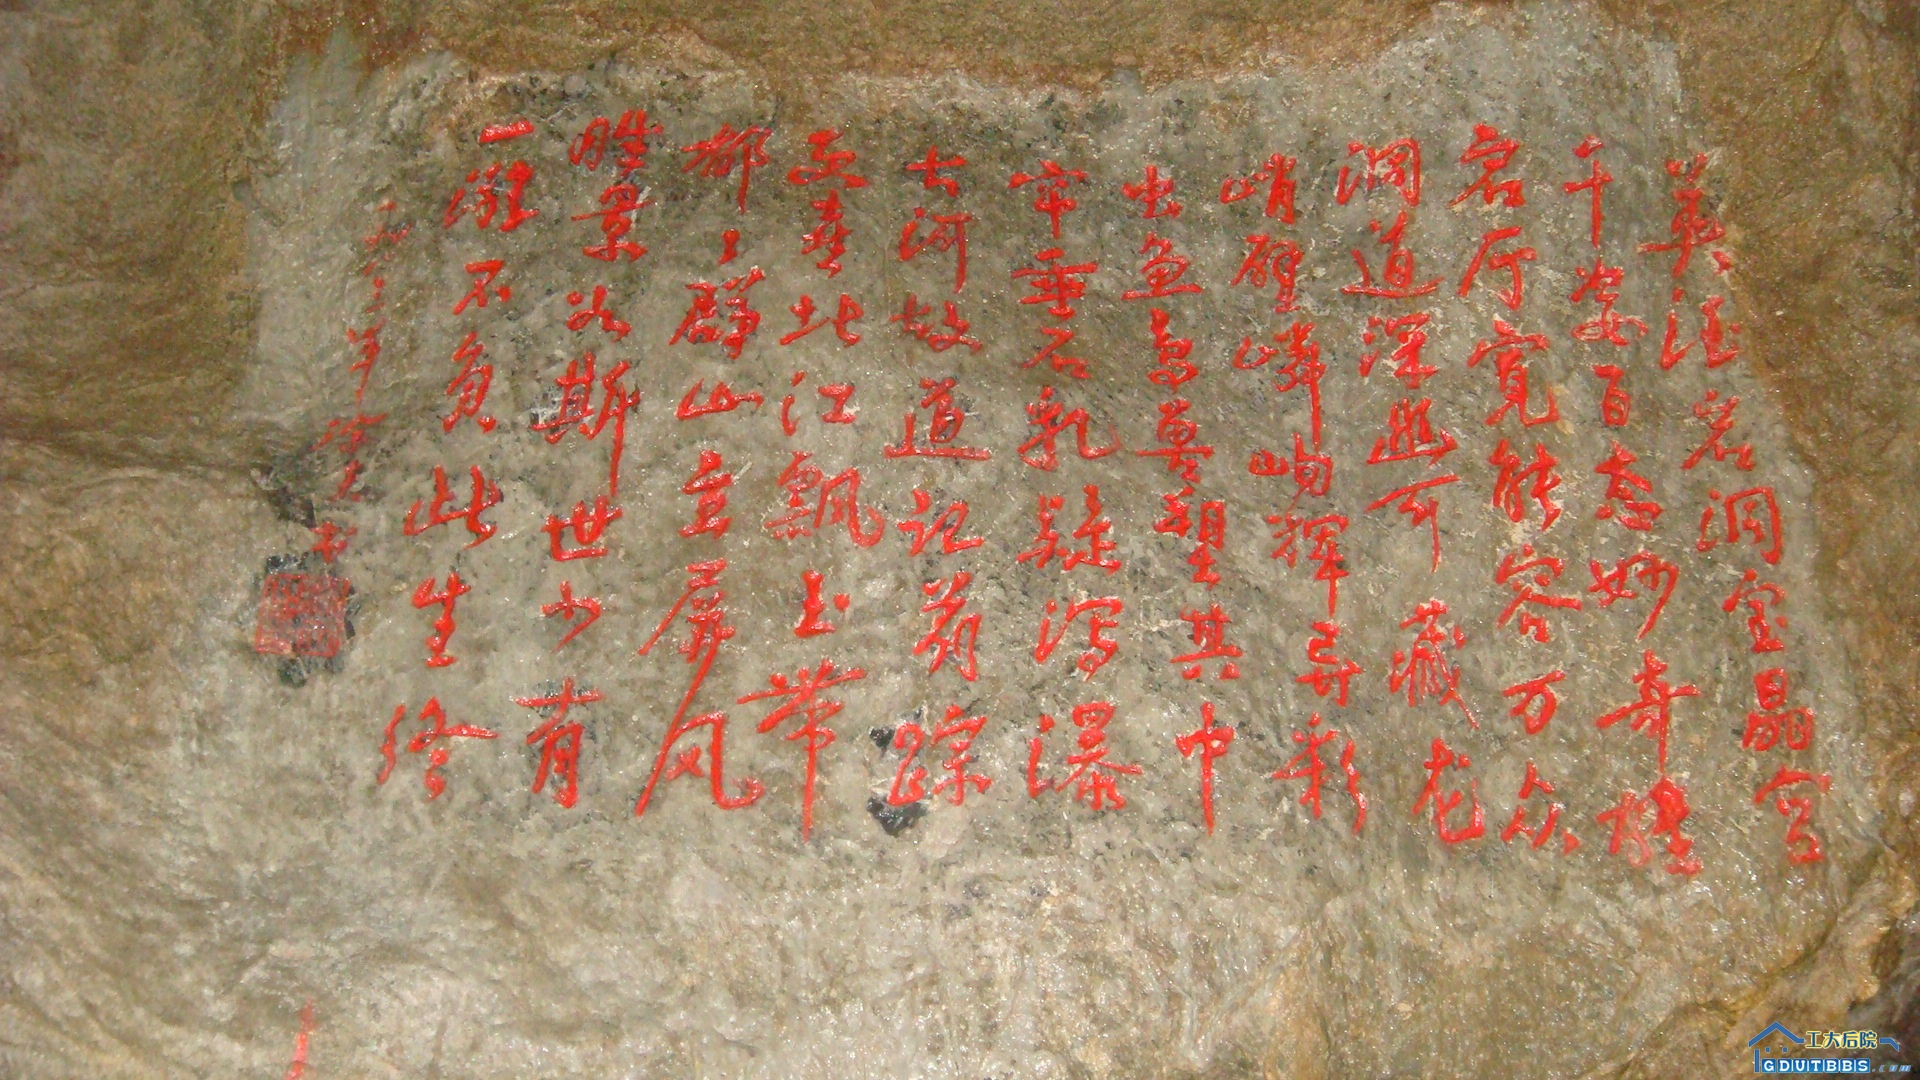 英德岩洞宝晶宫
千姿百态妙奇雄
宕厅宽能容万众
洞道深邃可藏龙
峭壁嶙峋辉异彩
虫鱼鸟兽塑其中
帘垂石乳疑泻瀑
古河故道记前踪
更喜北江飘玉带
都々群山立屏风
胜景如斯世少有
一游不负此生终
年徐光书
工大后院
GDUTBBS.com